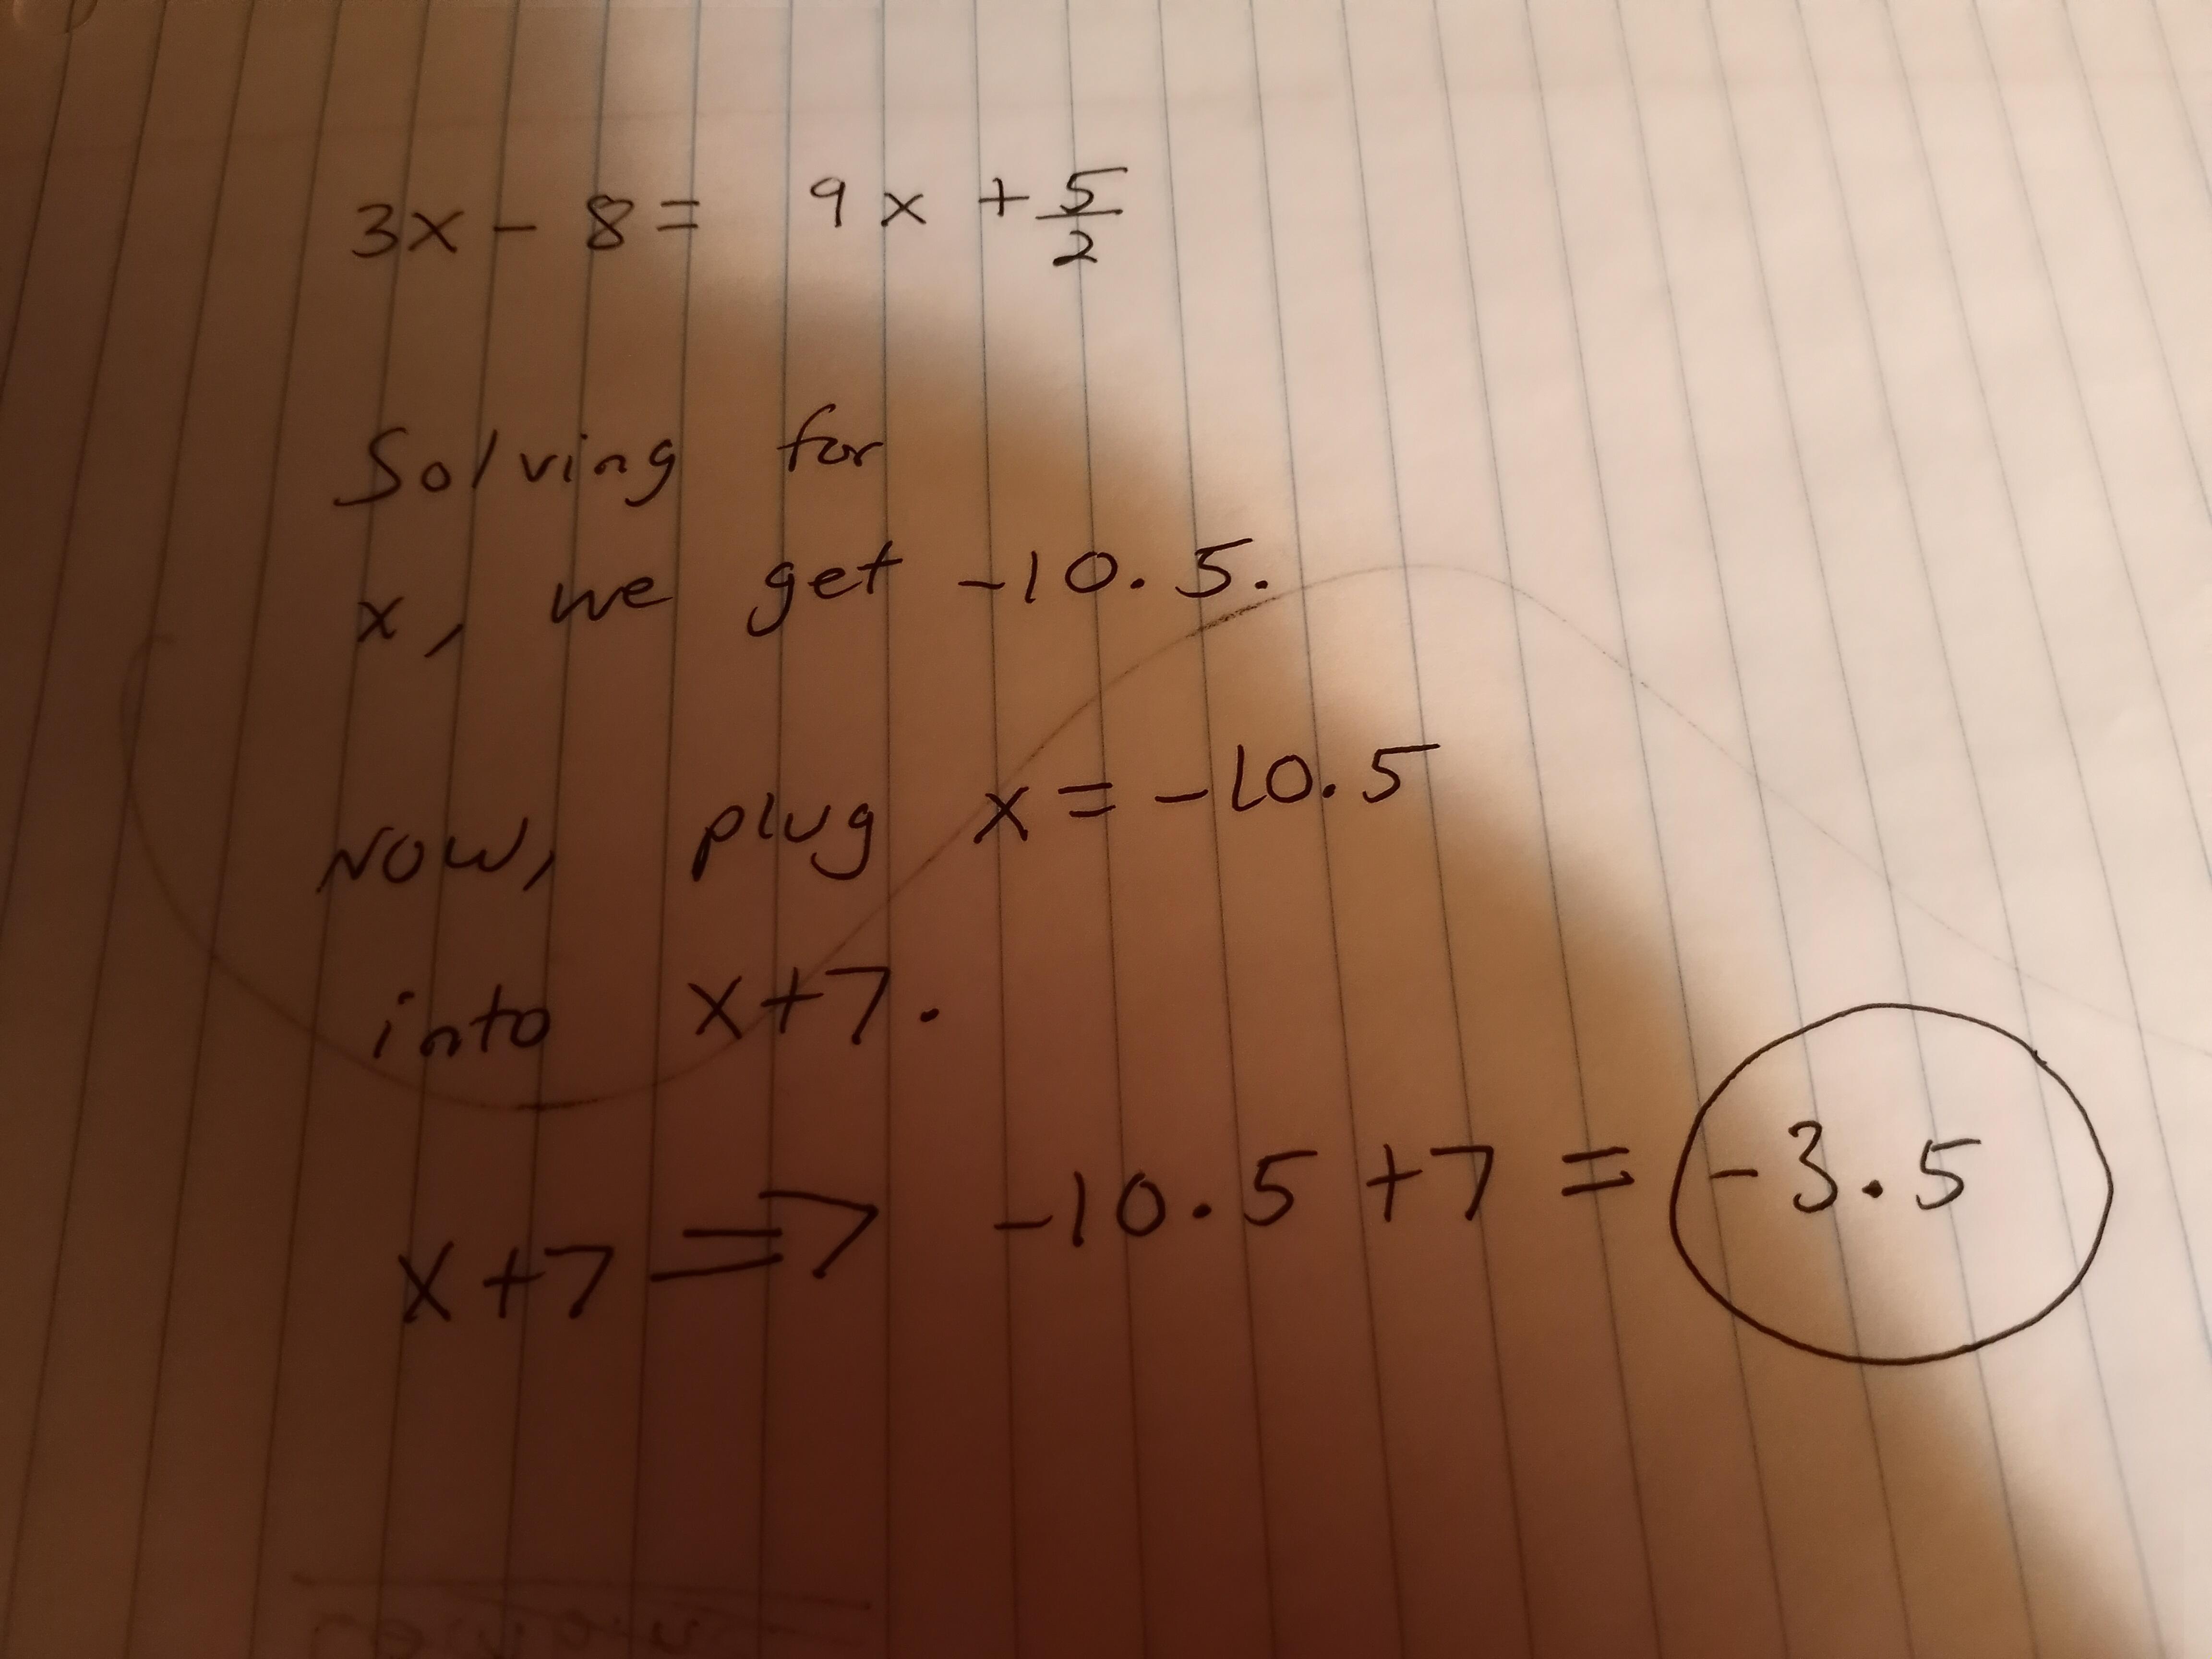 3x - 8 = 9x + 5/2
Solving for
x, we get -10.5.
Now, plug x = -10.5
into x+7.
x+7 => -10.5 +7 = -3.5